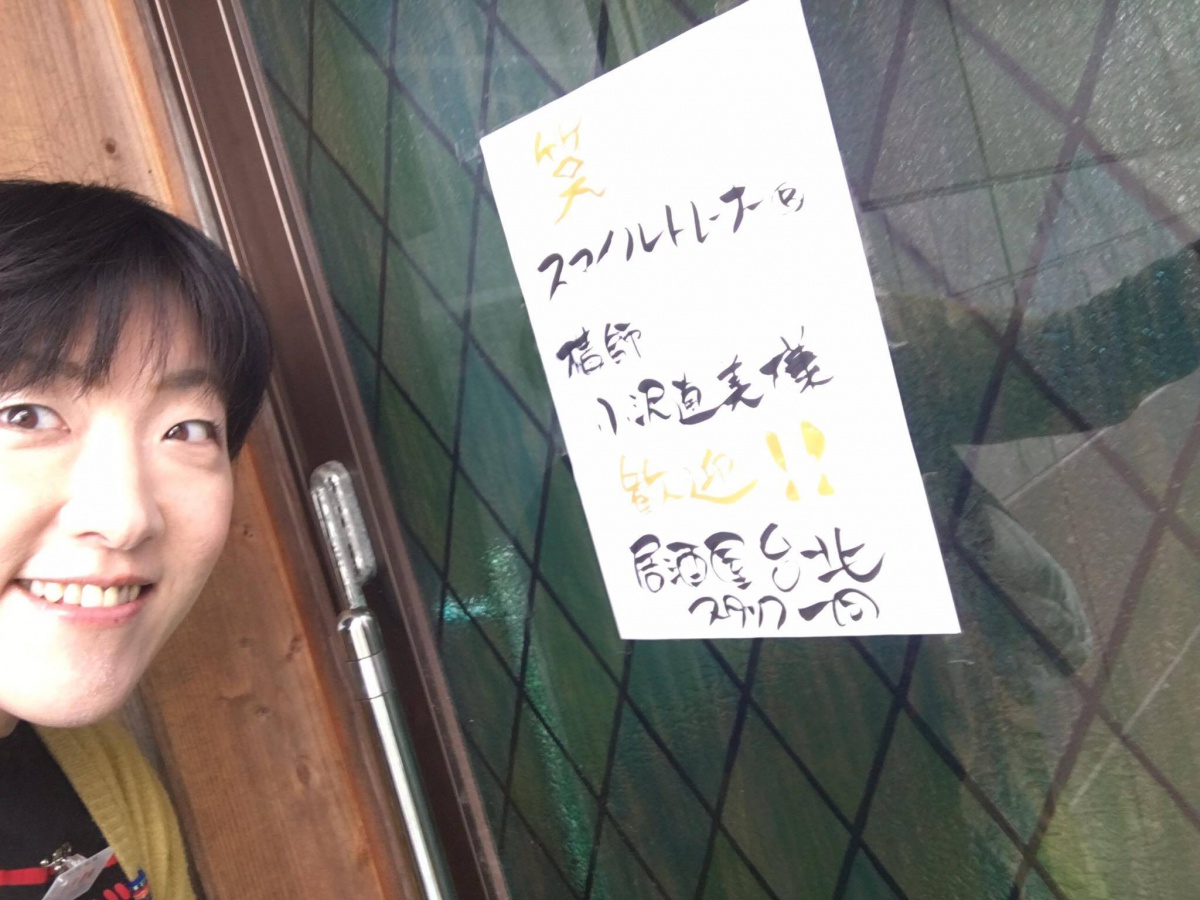 笑
スマイルトレーナー
講師
小沢直美様
歓迎!!
居酒屋台北
スタッフ一同